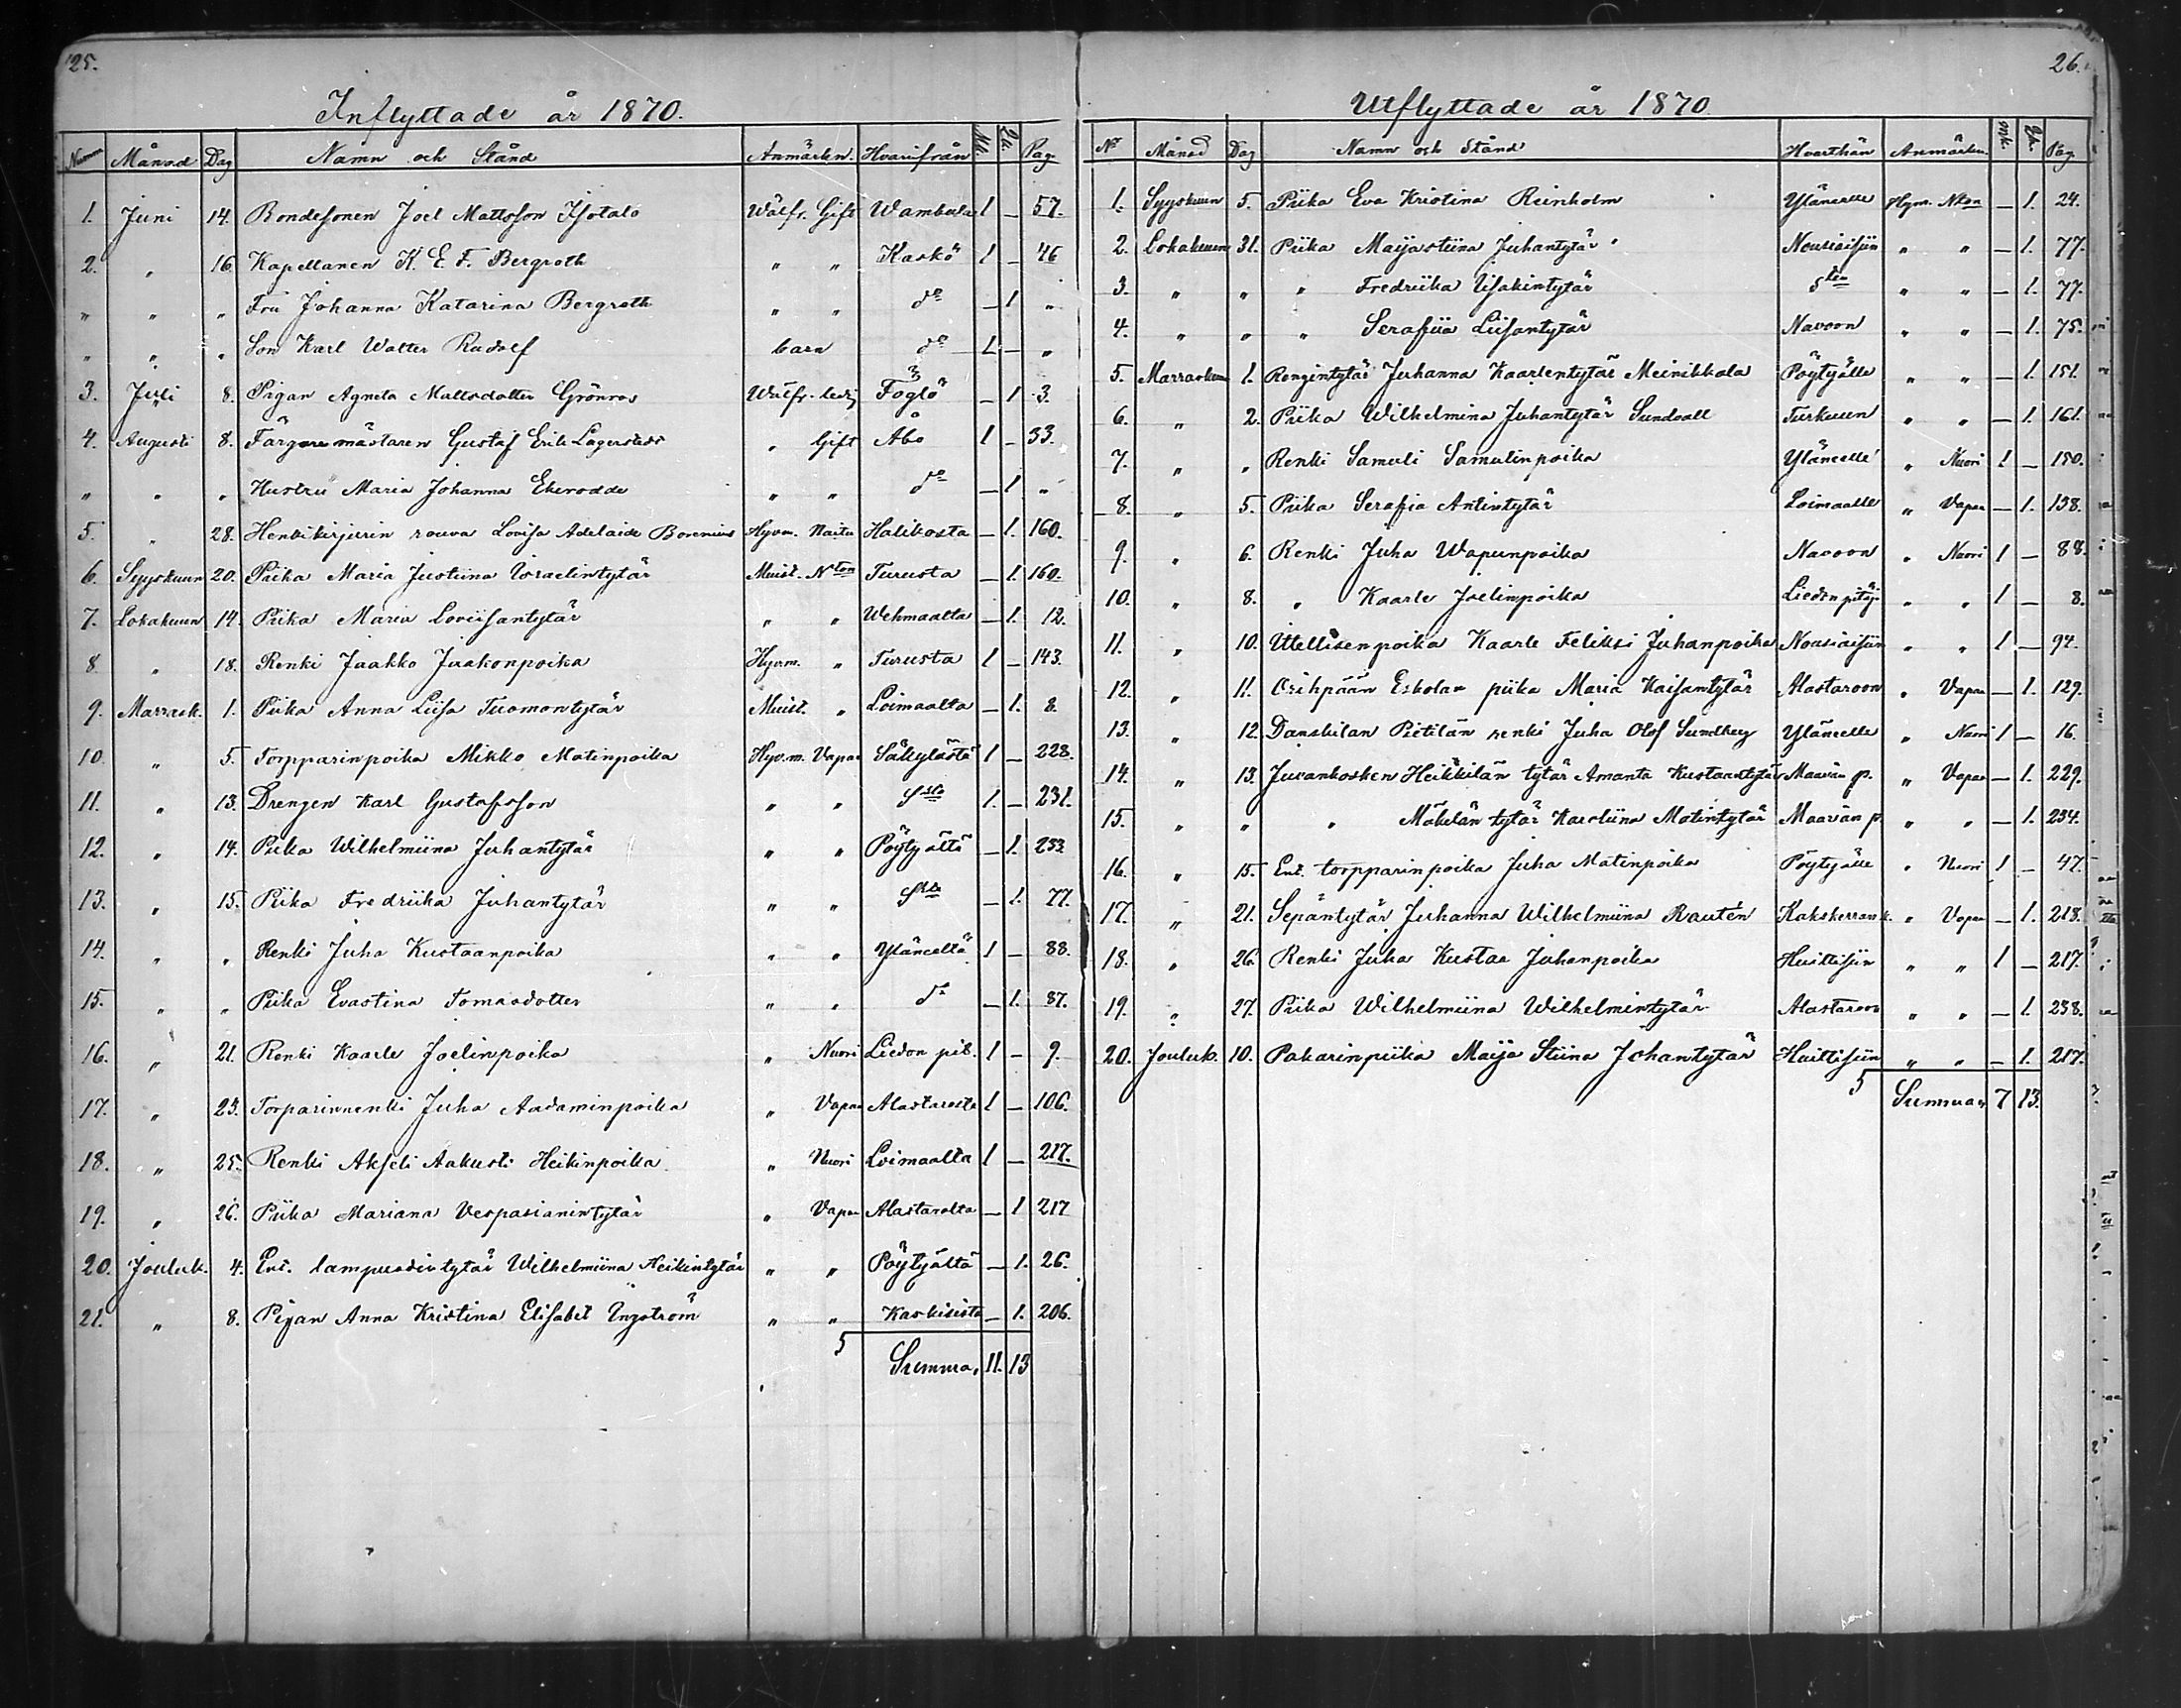 25.
Inflyttade år 1870.
Månad Dag Namn och Stånd Anmärkn. Hvarifrån Mk. Qk. Pag
1. Juni 14. Bondesonen Joel Mattsson Isotalo Wälfr. Gift Wambula 1 – 57.
2. " 16 Kapellanen K. E. F. Bergroth " " Kaskö 1 – 46
" " " Fru Johanna Katarina Bergroth " " do – 1 "
" " " Son Karl Walter Rudolf barn do 1 – "
3. Juli 8. Pigan Agneta Mattsdotter Grönros Wälfr. ledig Föglö – 1 3.
4. Augusti 8. Färgaremästaren Gustaf Erik Lagerstedt " Gift Åbo 1 – 33.
" " " Hustru Maria Johanna Ekerodde " " do – 1 "
5. " 28. Henkikirjurin rouva Lovisa Adelaide Borenius Hyvm. Naitu Halikosta – 1. 160.
6. Syyskuun 20. Piika Maria Justiina Israelintytär Muist. Nton Turusta – 1. 160.
7. Lokakuun 14. Piika Maria Loviisantytär " " Wehmaalta – 1. 12.
8 " 18. Renki Jaakko Jaakonpoika Hyvm. " Turusta 1 – 143.
9. Marrask. 1. Piika Anna Liisa Tuomontytär Muist. " Loimaalta – 1. 8.
10. " 5. Torpparinpoika Mikko Matinpoika Hyv.m. Vapaa Säkylästä 1 – 228.
11. " 13. Drengen Karl Gustafsson " " Ssta 1. – 231.
12. " 14. Piika Wilhelmiina Juhantytär " " Pöytyältä – 1. 233.
13. " 15. Piika Fredriika Juhantytär " " Slta – 1. 77.
14. " " Renki Juha Kustaanpoika " " Yläneeltä 1 – 88.
15. " " Piika Evastina Tomasdotter " " do – 1. 87.
16. " 21. Renki Kaarle Joelinpoika " Nuori Liedon pit. 1 – 9.
17. " 23. Torparinrenki Juha Aadaminpoika " Vapaa Alastarosta 1 – 106.
18. " 25. Renki Akseli Aakusti Heikinpoika " Nuori Loimaalta 1 – 217.
19. " 26. Piika Mariana Vespasianintytär " Vapaa Alastarolta – 1 217
20. Jouluk. 4. Ent. lampuodintytär Wilhelmiina Heikintytär " " Pöytyältä – 1. 26.
21. " 8. Pigan Anna Kristina Elisabet Ingström " " Kaskisista – 1. 206.
Summa, 11. 13
26.
Utflyttade år 1870
No Månad Dag Namn och Stånd Hvarthän Anmärkn. mk. Qk. Pag.
1. Syyskuun 5. Piika Eva Kristina Reinholm Yläneelle Hyvm. Nton – 1. 24.
2. Lokakuun 31. Piika Maijastiina Juhantytär Nousiaisiin " " – 1. 77.
3. " " " Fredriika Iisakintytär " " – 1. 77.
4. " " " Serafiia Liisantytär Navoon " " – 1. 75.
5. Marraskuun 1. Rengintytär Juhanna Kaarlentytär Meinikkala Pöytyälle " " – 1. 151.
6. " 2. Piika Wilhelmina Juhantytär Sundvall Turkuun " " – 1. 161.
7. " " Renki Samuli Samulinpoika Yläneelle " Nuori 1 – 150.
8. " 5. Piika Serafia Antintytär Loimaalle " Vapaa – 1. 138.
9. " 6. Renki Juha Wapunpoika Navoon " Nuori 1 – 88.
10. " 8. " Kaarle Joelinpoika Liedon pitäj. " " 1 – 8.
11. " 10. Itsellisenpoika Kaarle Feliksi Juhanpoika Nousiaisiin " " 1 – 94.
12. " 11. Orihpään Eskolan piika Maria Kaisantytär Alastaroon " Vapaa – 1. 129.
13. " 12. Danskilan Pietilän renki Juha Olof Sundberg Yläneelle " Nuori 1 – 16.
14. " 13. Juvankosken Heikkilän tytär Amanta Kustaantytär Maarian p. " Vapaa – 1. 229.
15. " " " Mäkilän tytär Karoliina Matintytär Maarian p. " " – 1. 234.
16. " 15. Ent. torpparinpoika Juha Matinpoika Pöytyälle " Nuori 1 – 47.
17. " 21. Sepäntytär Juhanna Wilhelmiina Rautén Kakskerran k. " Vapaa – 1. 218.
18. " 26. Renki Juha Kustaa Juhanpoika Huittisiin " " 1 – 217.
19. " 27. Piika Wilhelmiina Wilhelmintytär Alastaroon " " – 1. 238.
20. Jouluk. 10. Pakarinpiika Maija Stiina Johantytär Huittisiin " " – 1. 217.
Summa, 7 13.